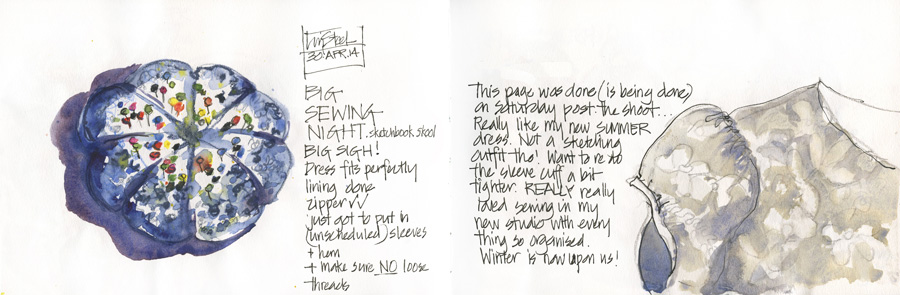 Liz Steel
30 APR.14
BIG
SEWING
NIGHT. sketchbook.skool
BIG SIGH!
Dress fits perfectly
lining done
zipper ✓✓
just got to put in
(unscheduled) sleeves
+ hem
+ make sure NO loose
threads
This page was done (is being done)
on Saturday post the shoot...
Really like my new SUMMER
dress. Not a 'sketching
outfit tho'! Want to re do
the sleeve cuff a bit
tighter. REALLY really
loved sewing in my
new studio with every
thing so organised.
Winter is now upon us!